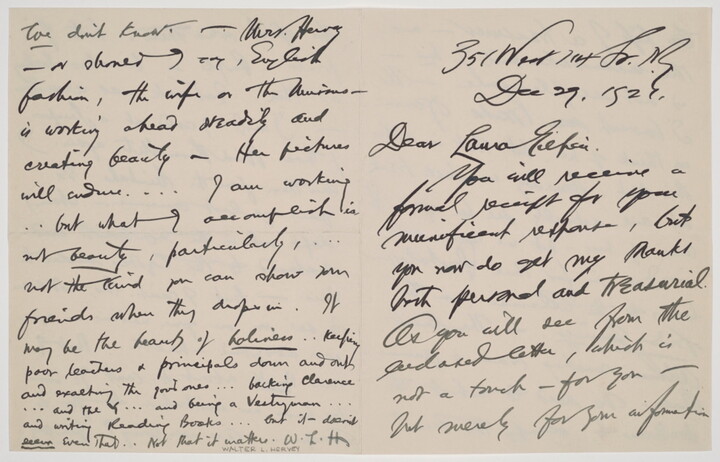 351 West 114 St. NY
Dec 29, 1921.
Dear Laura Gilpin.
You will receive a
formal receipt for your
munificent response, but
you now do get my thanks
both personal and treasurial.
As you will see from the
enclosed letter, which is
not a touch – for you –
but merely for your information
we don't know. — Mrs. Hervey
– or should I say, English
fashion, the wife or the
is working ahead steadily and
creating beauty – Her pictures
will endure.... I am working
.. but what I accomplish is
not beauty, particularly, ...
not the kind you can show your
friends when they drop in. It
may be the beauty of holiness.. keeping
poor teachers & principals down and out
and exalting the good ones... backing Clarence
... and the Y... and being a Vestryman ...
and writing Reading Books... but it doesn't
seem even that.. Not that it matters. W. L. H
WALTER L. HERVEY